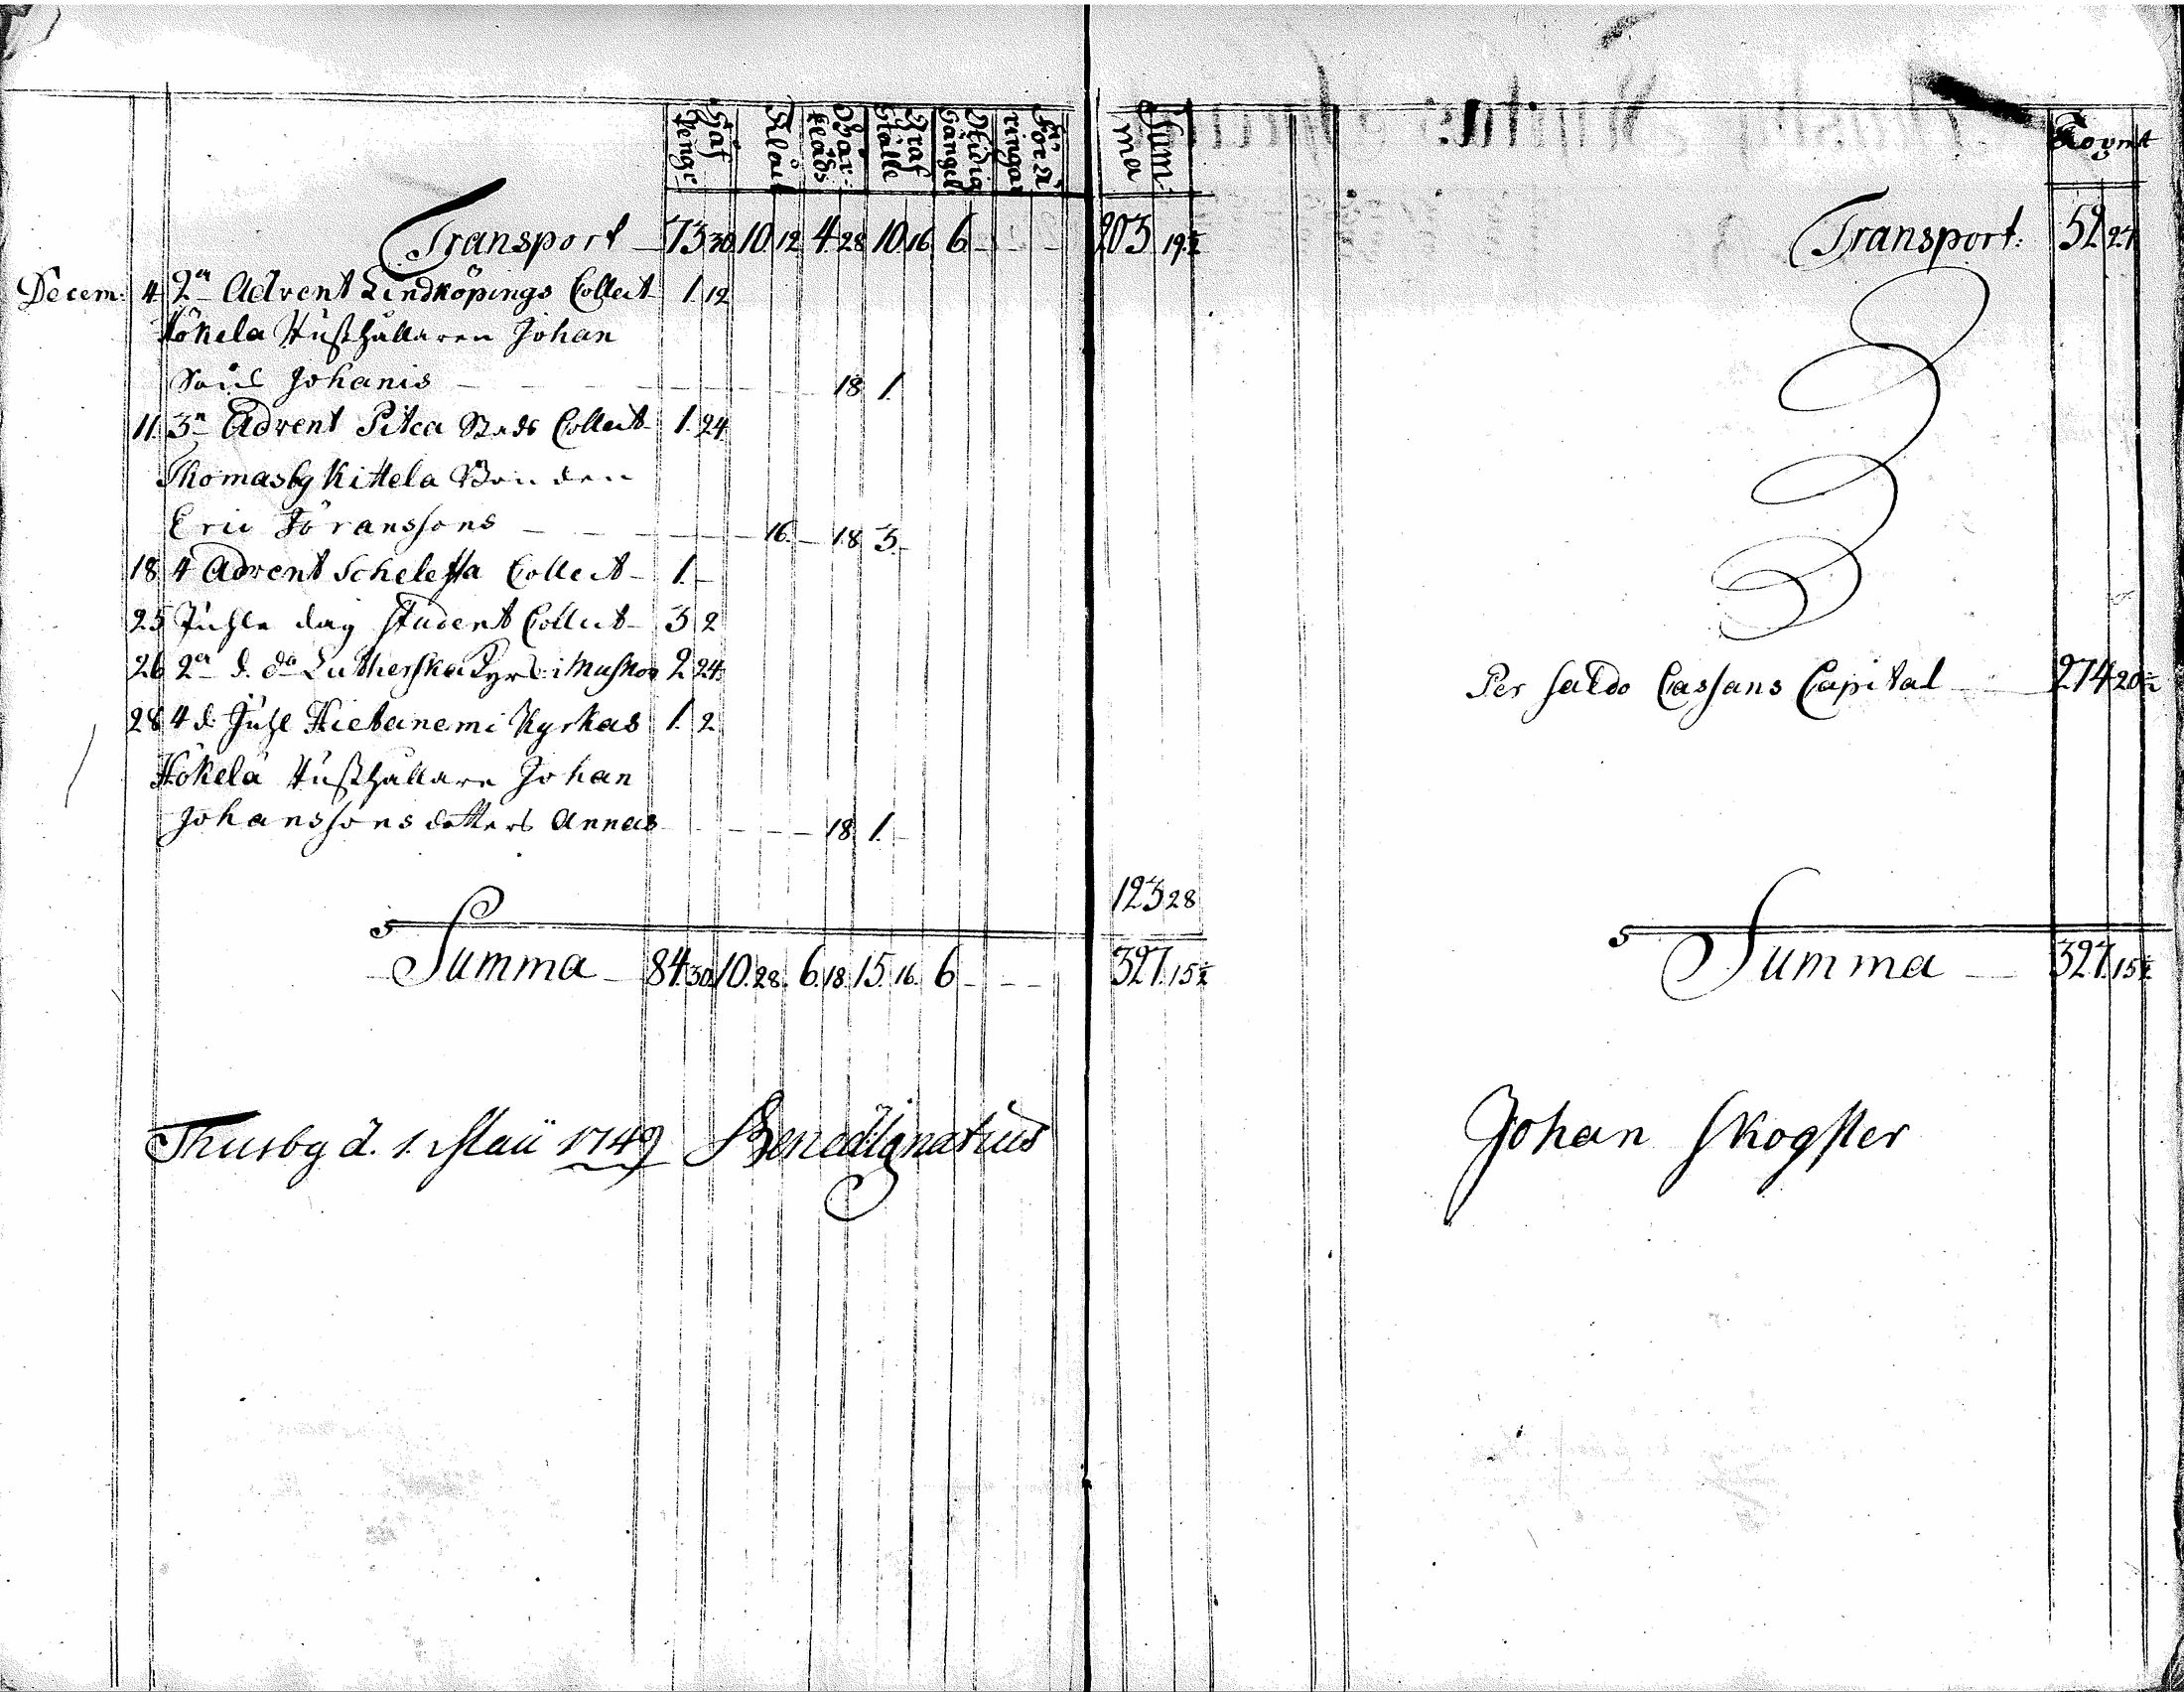 Håf Penge Klåck Bår- kläds Graf Ställe Afidia Gängel Förä ringar Sum- ma Koymt
Transport 73 30 10 12 4 28 10 16 6 - - - 203 19½
Transport: 52 27
Decem: 4 2a Advent Lindköpings Collect 1. 12
Hökela Husshållaren Johan
Sons Johanis 18 1.
11. 3a Advent Pitea Stads Collect 1. 24
Thomasby Kittela Bonden
Eric Jöranssons 16. 18 3.
18 4 Advent Schelefta Collect 1. -
25 Juhle dag student Collect 3 2
26 2a d. do Lutherska Kyrk: i Muskou 2 24
Per saldo Cassans Capital 274 20½
28 4 d. Juhl Hietanemi Kyrkas 1. 2
Hökelä Husshållare Johan
Johanssons dotters Annas 18 1.
123 28
Summa 84 30 10. 28. 6. 18. 15. 16. 6 - - - 327. 15½
Summa 327. 15½
Thusby d. 1. Maii 1749 Bened. Ignatius
Johan Skogster